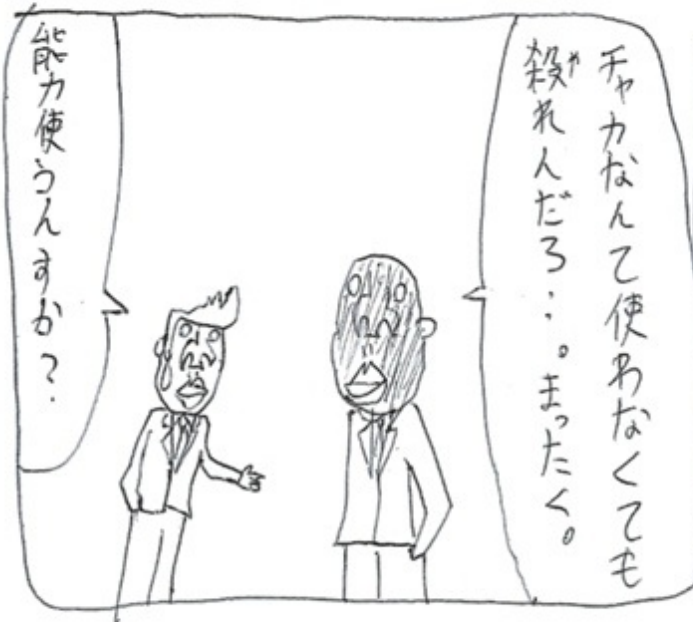 チャカなんて使わなくても
殺れんだろ…。まったく。
や
能力使うんすか？